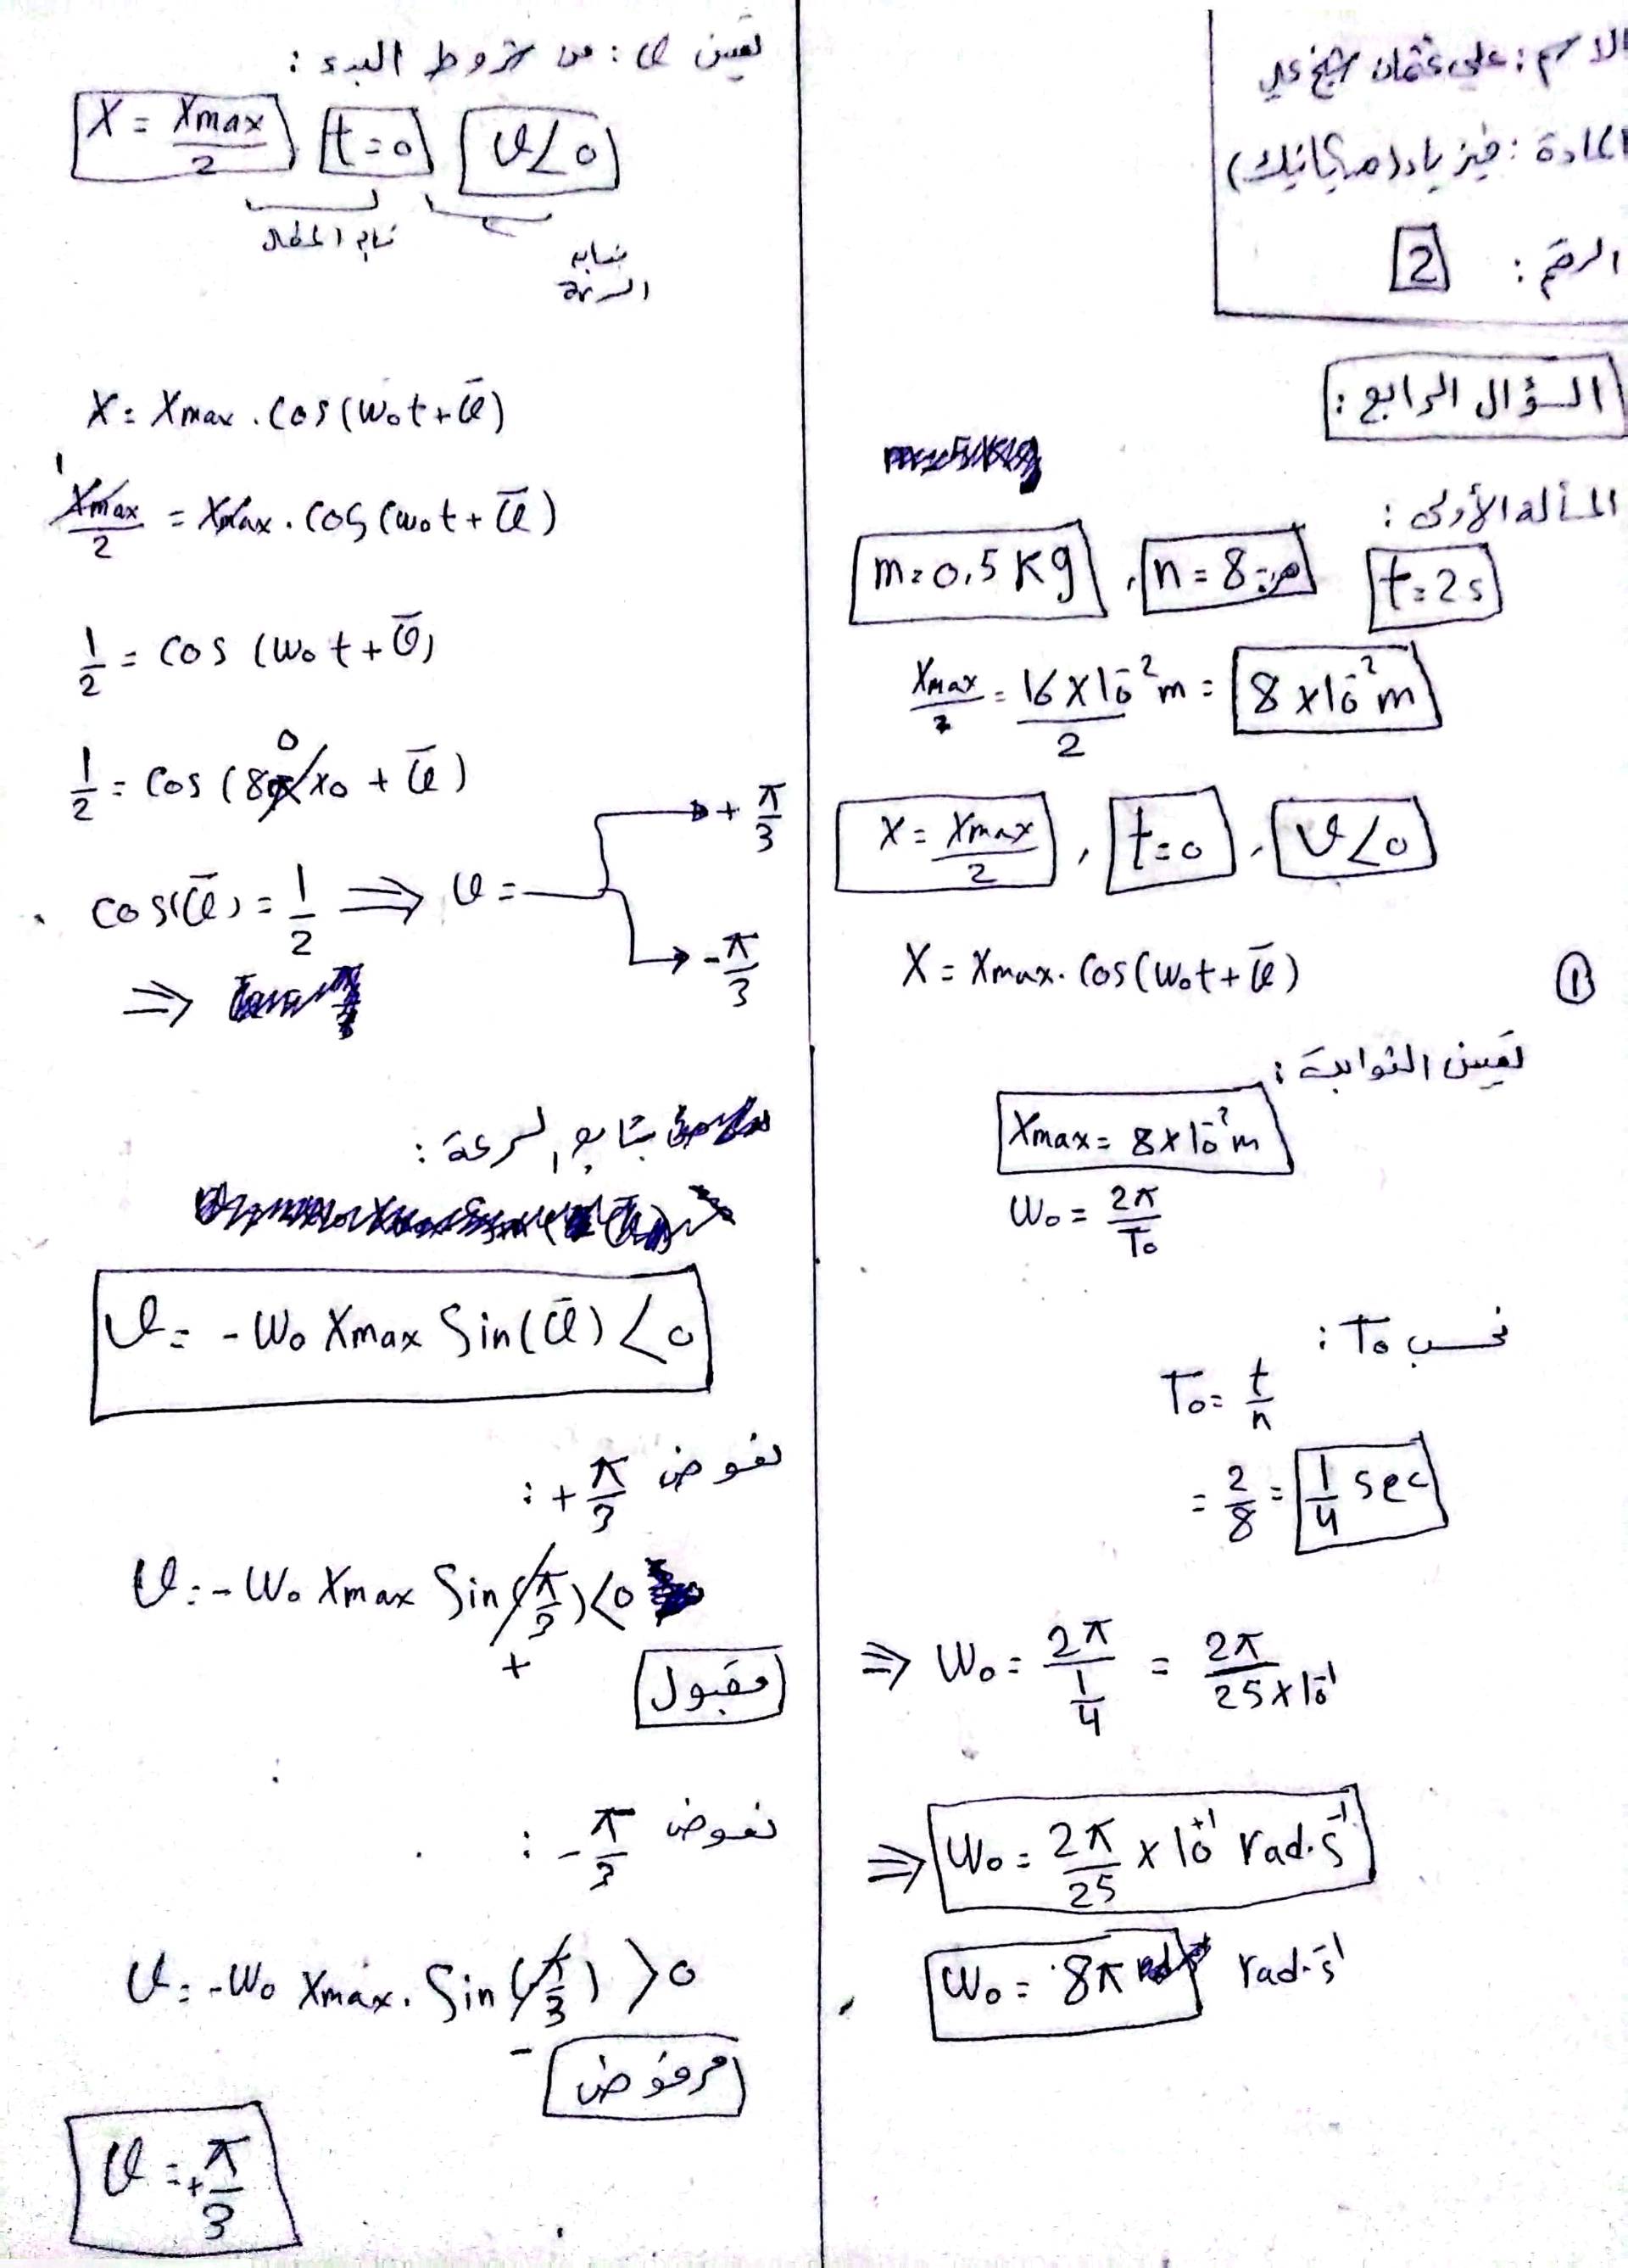 الاسم : علي عثمان
المادة : فيزياء (ميكانيك)
الرقم : 2
السؤال الرابع :
المسألة الأولى :
m = 0,5 Kg , n = 8 هزة t = 2s
Xmax/2 = 16 × 10⁻² m / 2 = 8 × 10⁻² m
X = Xmax/2 , t = 0 , v < 0
① X = Xmax . cos(ω₀t + φ̄)
تعيين الثوابت :
Xmax = 8 × 10⁻² m
ω₀ = 2π/T₀
نحسب T₀ :
T₀ = t/n
= 2/8 = 1/4 sec
⇒ ω₀ = 2π/(1/4) = 2π/(25 × 10⁻¹)
⇒ ω₀ = 2π/25 × 10⁺¹ rad.s⁻¹
ω₀ = 8π rad.s⁻¹
تعيين φ : من شروط البدء :
X = Xmax/2 t = 0 v < 0
تابع المطال
تابع السرعة
X = Xmax . cos(ω₀t + φ̄)
Xmax/2 = Xmax . cos(ω₀t + φ̄)
1/2 = cos(ω₀t + φ̄)
1/2 = cos(8π × 0 + φ̄)
cos(φ̄) = 1/2 ⇒ φ = + π/3
- π/3
⇒
بتابع السرعة :
v = -ω₀ Xmax Sin(φ̄) < 0
نعوض + π/3 :
v = -ω₀ Xmax Sin(π/3) < 0
+
مقبول
نعوض - π/3 :
v = -ω₀ Xmax . Sin(-π/3) > 0
-
مرفوض
φ = + π/3